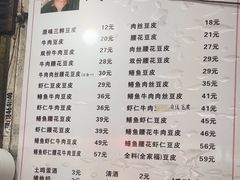 原味三鲜豆皮 12元
牛肉豆皮 20元
双份牛肉豆皮 29元
牛肉腰花豆皮 30元
牛肉肉丝腰花豆皮 32元
虾仁豆皮 27元
虾仁蛋豆皮 30元
虾仁腰花豆皮 36元
虾仁牛肉豆皮 39元
鳝鱼虾仁豆皮 45元
虾仁腰花牛肉豆皮 49元
鳝鱼腰花牛肉豆皮 52元
土鸡蛋酒 3元
肉丝豆皮 18元
腰花豆皮 21元
肉丝腰花豆皮 25元
双份腰花豆皮 29元
鳝鱼豆皮 29元
鳝鱼肉丝豆皮 35元
虾仁牛肉
鳝鱼腰花豆皮 39元
鳝鱼牛肉豆皮 41元
鳝鱼虾仁腰花豆皮 54元
金料(全家福)豆皮 58元
清酒 2元